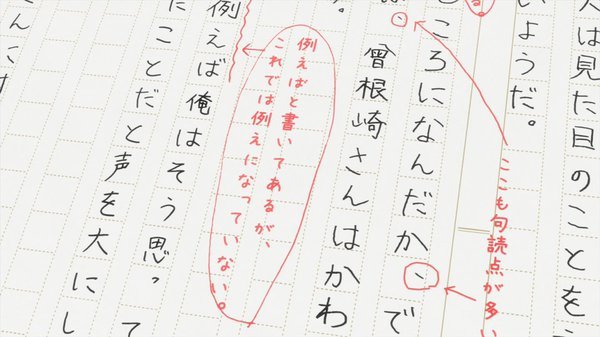 人は見た目のことを
いようだ。
る。
ここも句読点が多い
ころになんだか、で
は、
曾根崎さんはかわ
。
例えばと書いてあるが、
これでは例えになっていない。
例えば俺はそう思っ
たことだと声を大にし
て
さんにす